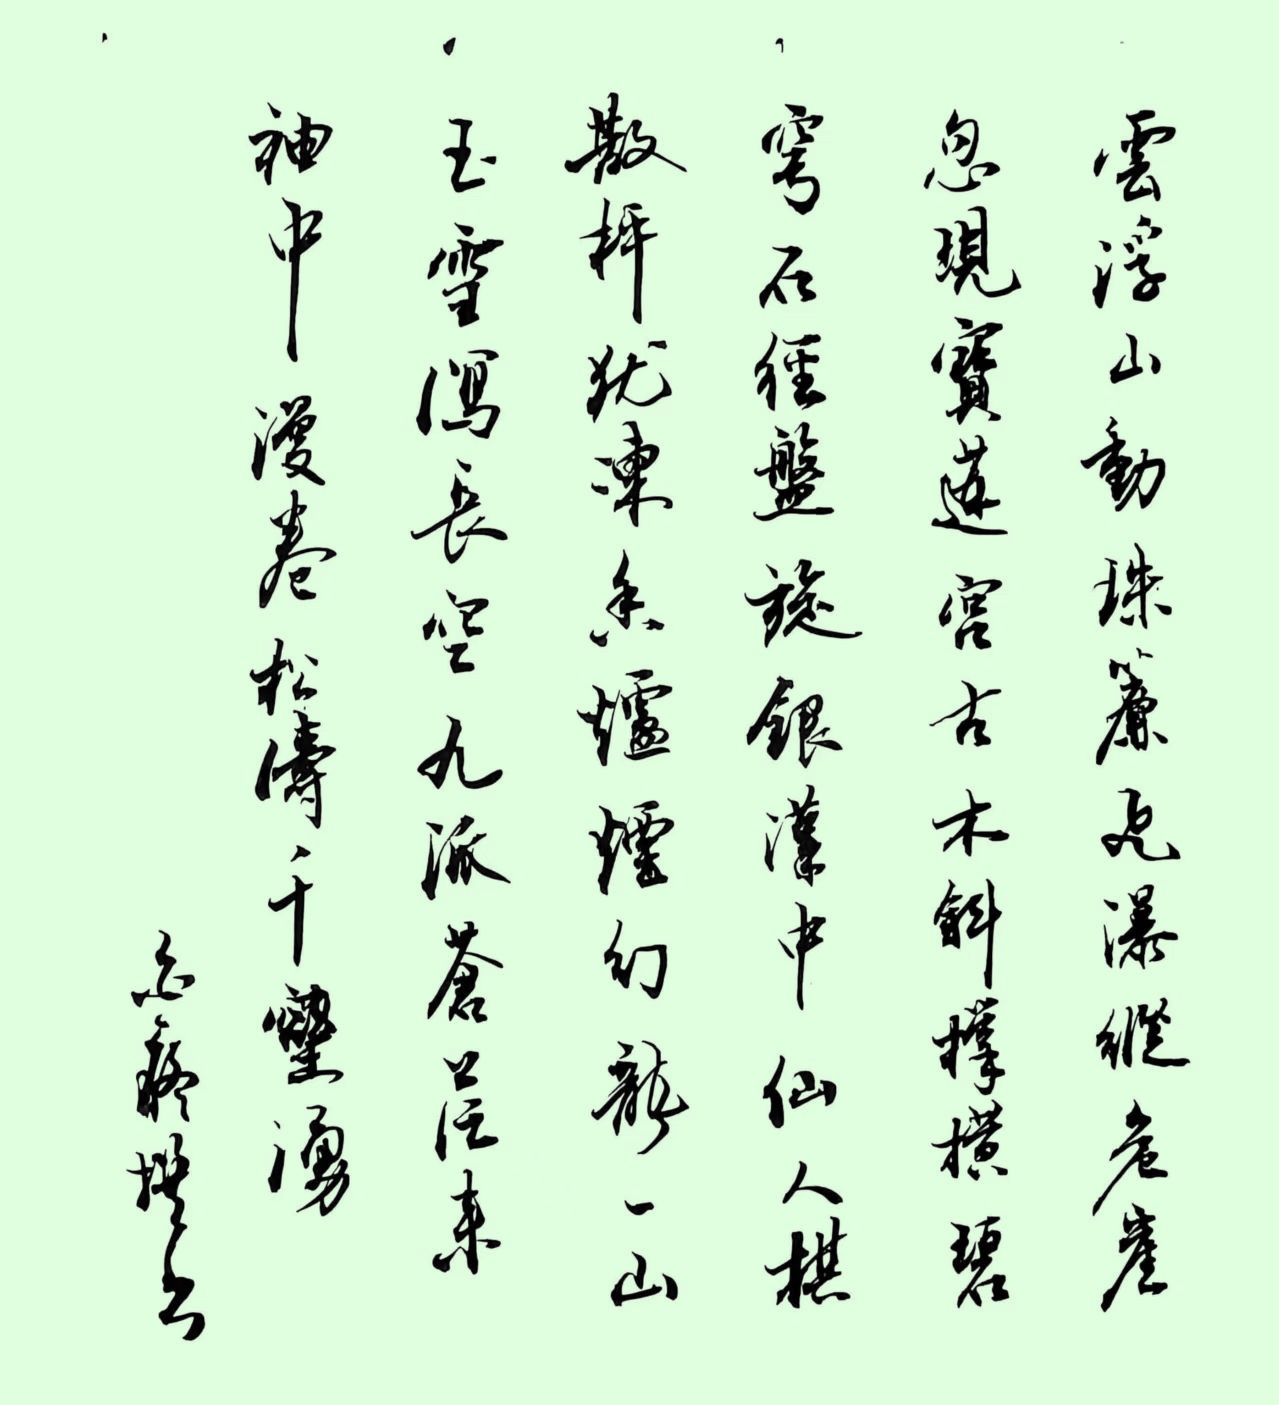 雲浮山動珠簾飛瀑縱危崖
忽現寶蓮宮古木斜撐橫碧
穹石徑盤旋銀漢中仙人棋
散枰猶凍香爐煙幻龍一山
玉雪瀉長空九派蒼茫來
袖中漫卷松濤千壑湧
書